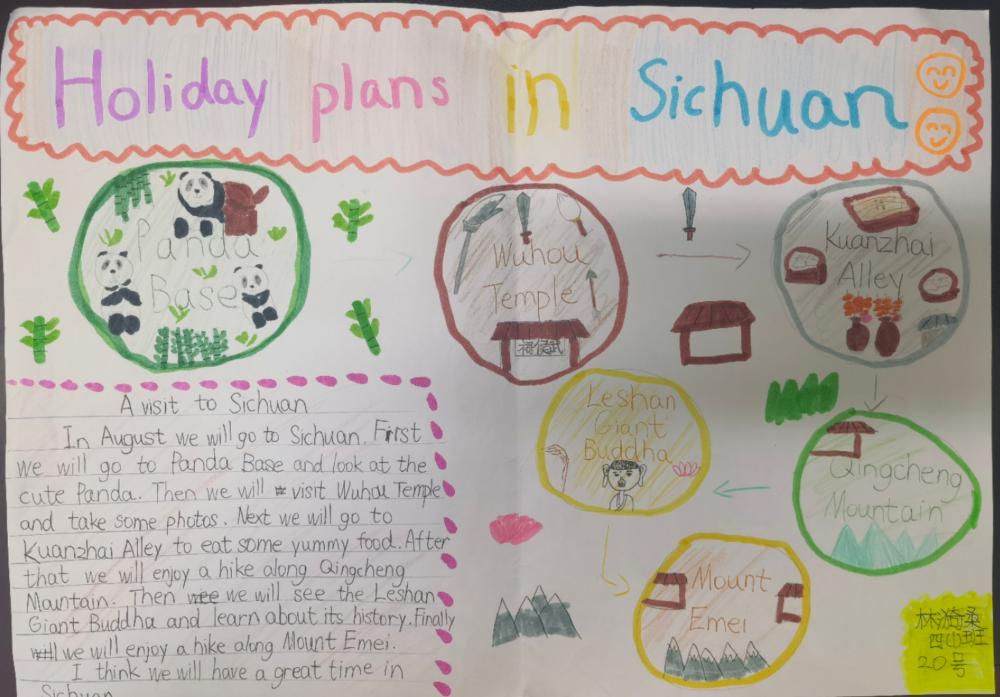 Holiday plans in Sichuan
Panda
Base
Wuhou
Temple
Kuanzhai
Alley
Leshan
Giant
Buddha
Qingcheng
Mountain
Mount
Emei
A visit to Sichuan
In August we will go to Sichuan. First
we will go to Panda Base and look at the
cute Panda. Then we will visit Wuhou Temple
and take some photos. Next we will go to
Kuanzhai Alley to eat some yummy food. After
that we will enjoy a hike along Qingcheng
Mountain. Then we will see the Leshan
Giant Buddha and learn about its history. Finally
we will enjoy a hike along Mount Emei.
I think we will have a great time in
Sichuan
班
20号